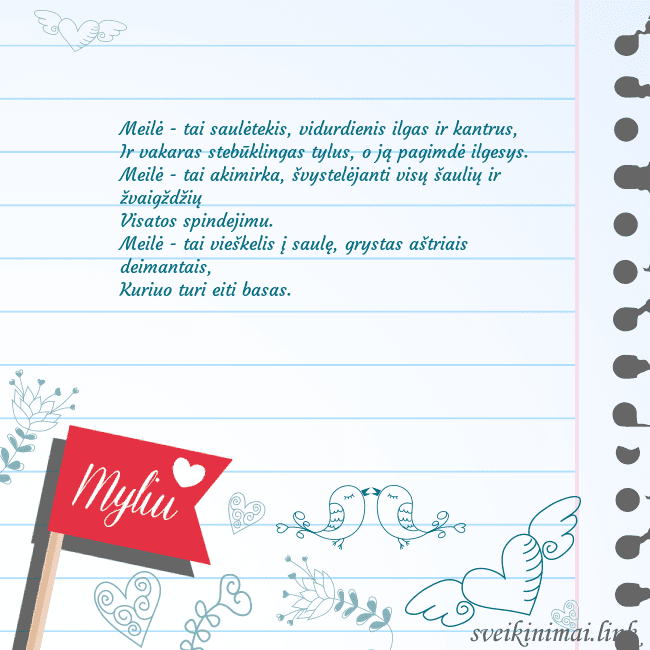 Meilė - tai saulėtekis, vidurdienis ilgas ir kantrus,
Ir vakaras stebūklingas tylus, o ją pagimdė ilgesys.
Meilė - tai akimirka, švystelėjanti visų šaulių ir
žvaigždžių
Visatos spindejimu.
Meilė - tai vieškelis į saulę, grystas aštriais
deimantais,
Kuriuo turi eiti basas.
Myliu
sveikinimai.link